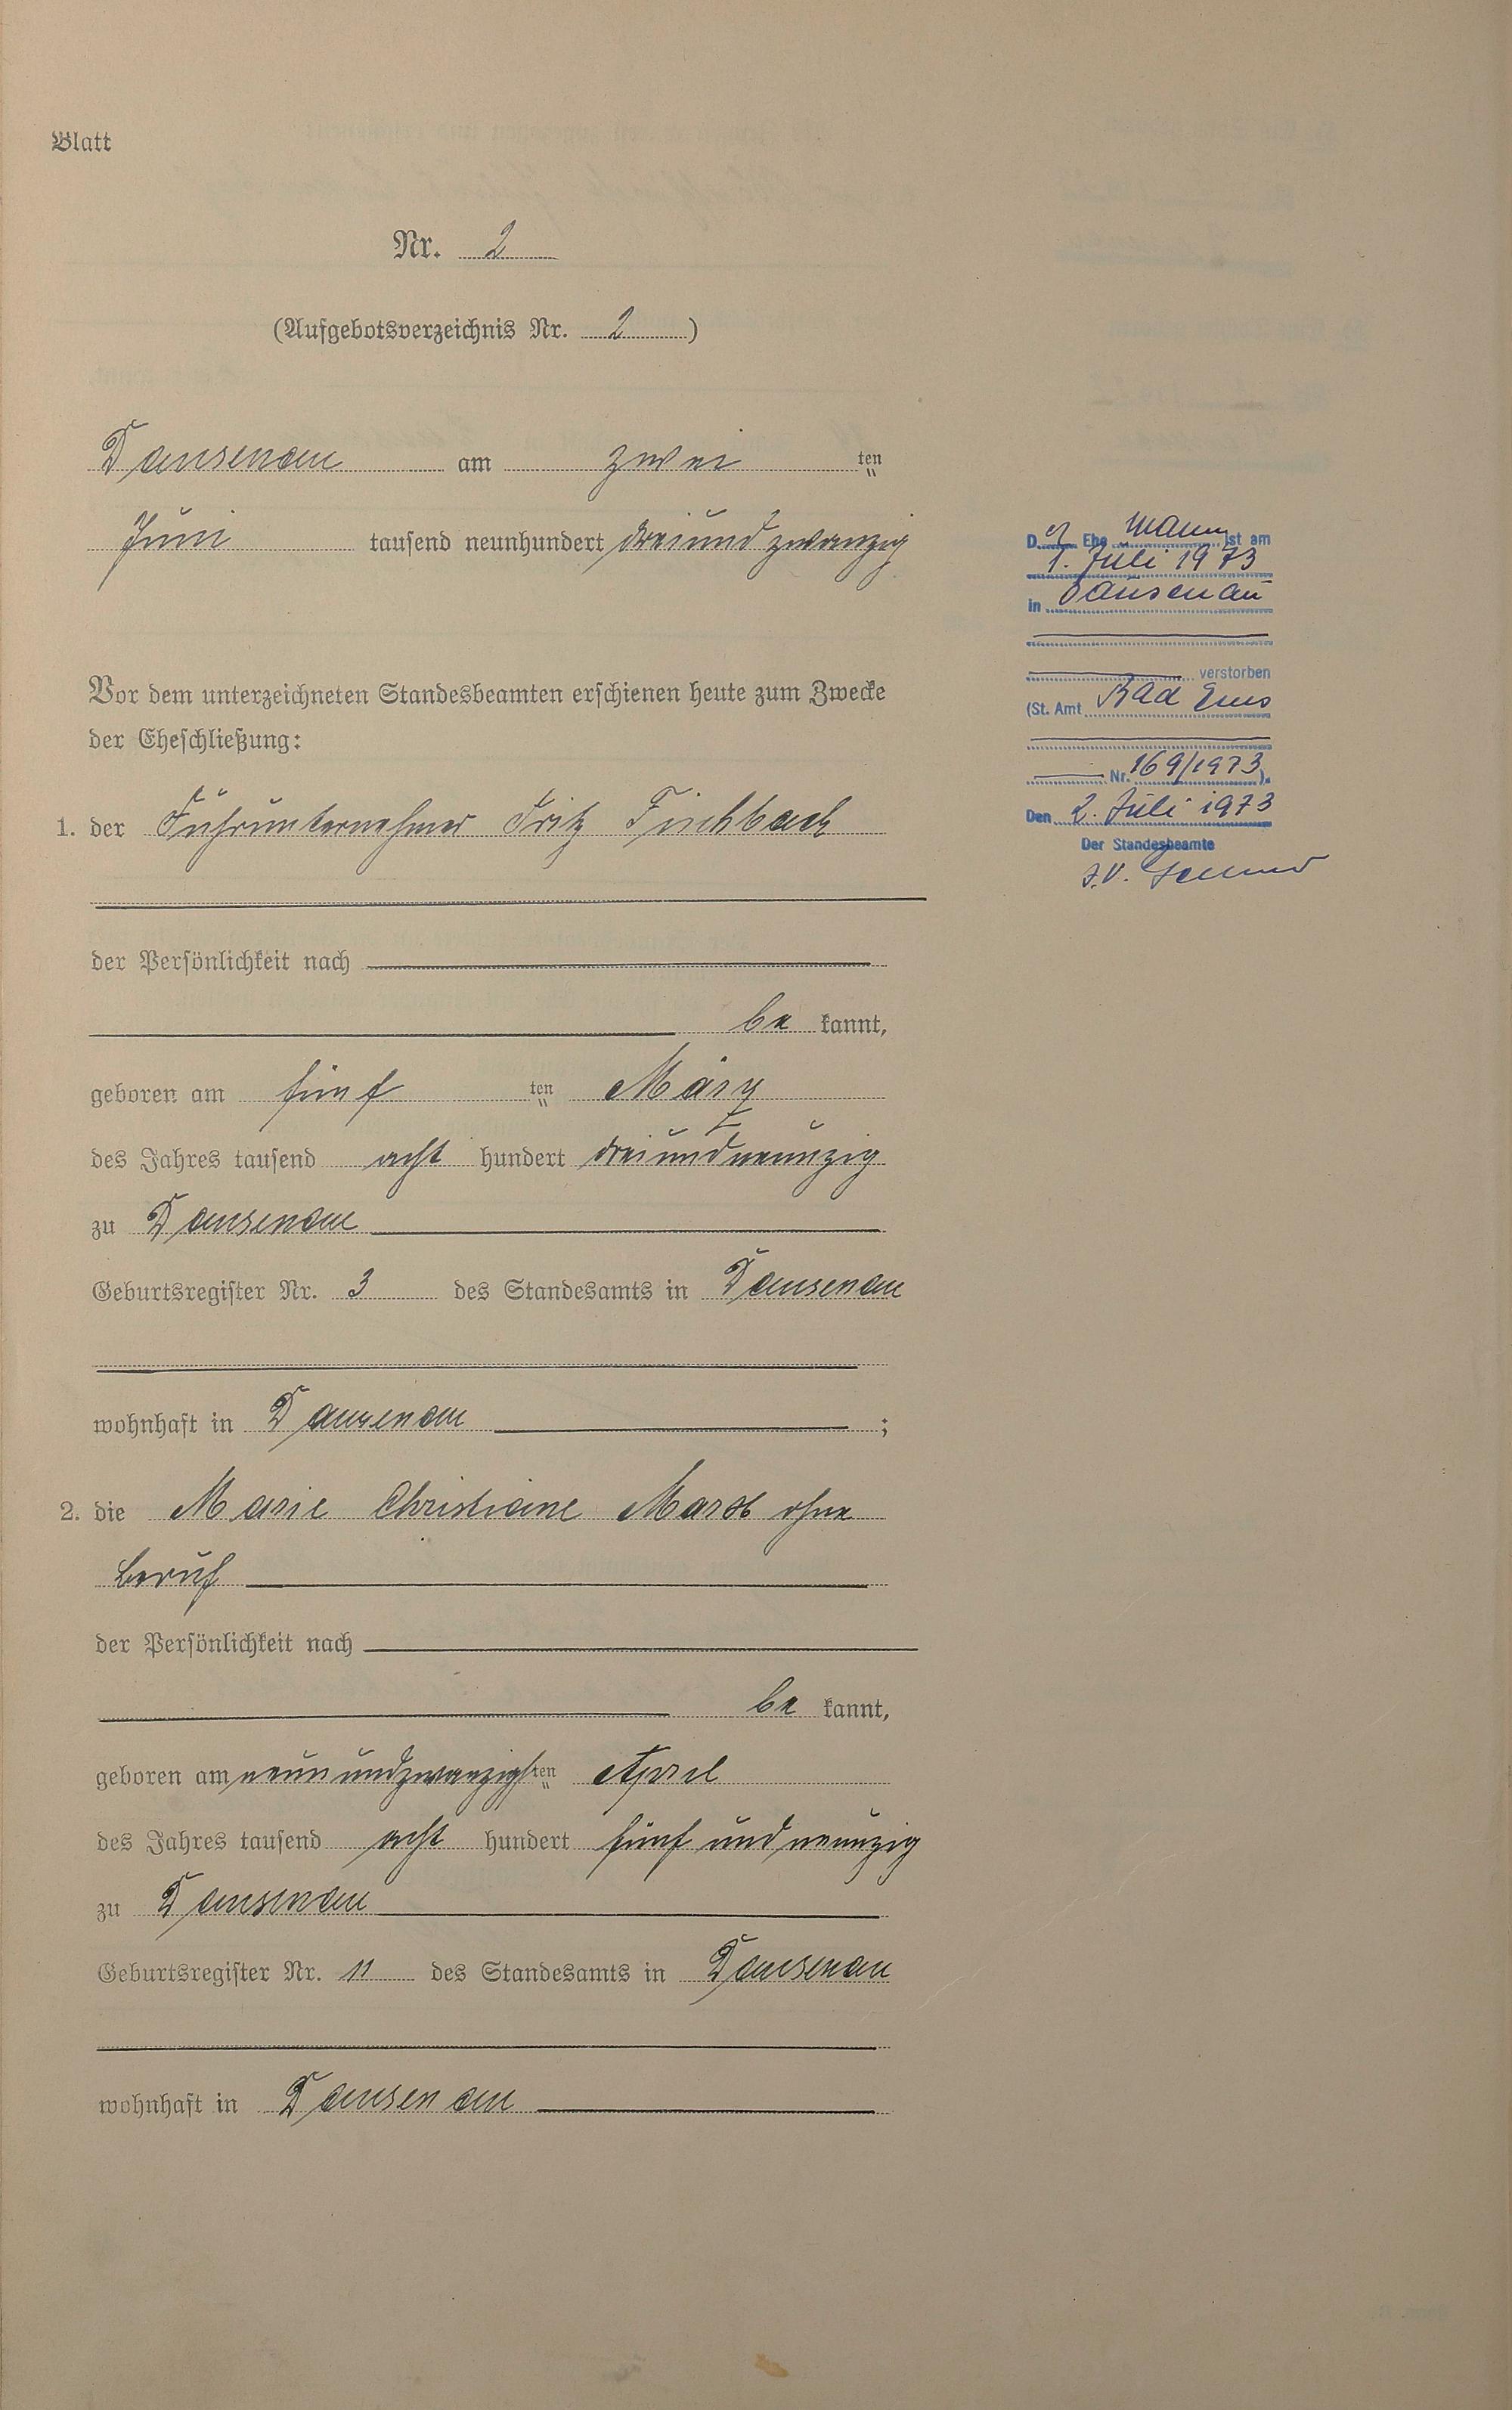 Blatt
Nr. 2
(Aufgebotsverzeichnis Nr. 2)
Dausenau am zwei ten
Juni tausend neunhundert dreiundzwanzig
Vor dem unterzeichneten Standesbeamten erschienen heute zum Zwecke
der Eheschließung:
1. der Fuhrunternehmer Fritz Fischbach
der Persönlichkeit nach
be kannt,
geboren am fünf ten März
des Jahres tausend acht hundert dreiundneunzig
zu Dausenau
Geburtsregister Nr. 3 des Standesamts in Dausenau
wohnhaft in Dausenau ;
2. die Marie Christiane ohne
Beruf
der Persönlichkeit nach
be kannt,
geboren am neunundzwanzigsten April
des Jahres tausend acht hundert fünf und neunzig
zu Dausenau
Geburtsregister Nr. 11 des Standesamts in Dausenau
wohnhaft in Dausenau
D er Ehe mann ist am
1. Juli 1973
in Dausenau
verstorben
(St. Amt Bad Ems
Nr. 169/1973).
Den 2. Juli 1973
Der Standesbeamte
J.V.